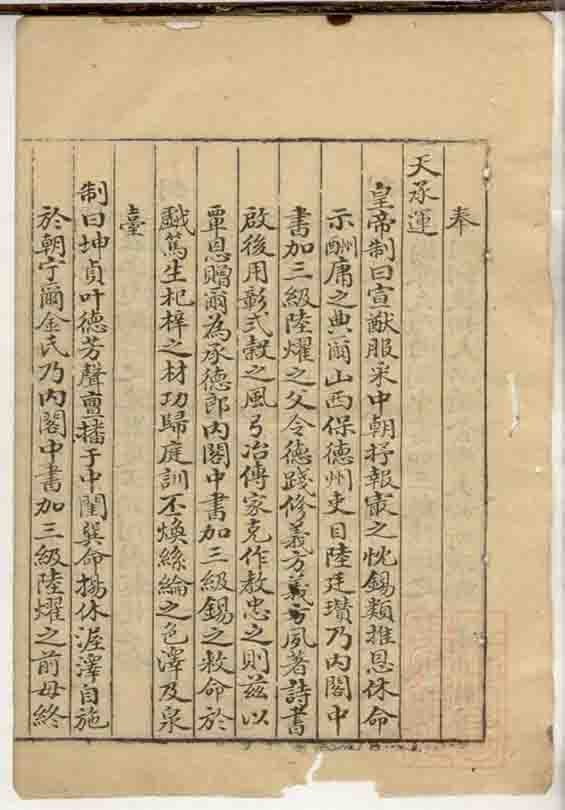 奉
天承運
皇帝制曰宣猷服采中朝抒報最之忱錫類推恩休命
示酬庸之典爾山西保德州吏目陸廷瓚乃內閣中
書加三級陸燿之父令德踐修義方義方夙著詩書
啟後用彰式穀之風弓冶傳家克作教忠之則茲以
覃恩贈爾為承德郎內閣中書加三級錫之敕命於
戱篤生杞梓之材功歸庭訓丕煥絲綸之色澤及泉
臺
制曰坤貞叶德芳聲亶播于中閨巽命揚休渥澤自施
於朝宁爾金氏乃內閣中書加三級陸燿之前母終